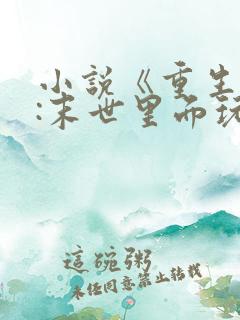 小説《重生
:末世里而玩
這碗粥
未经同意禁止转载